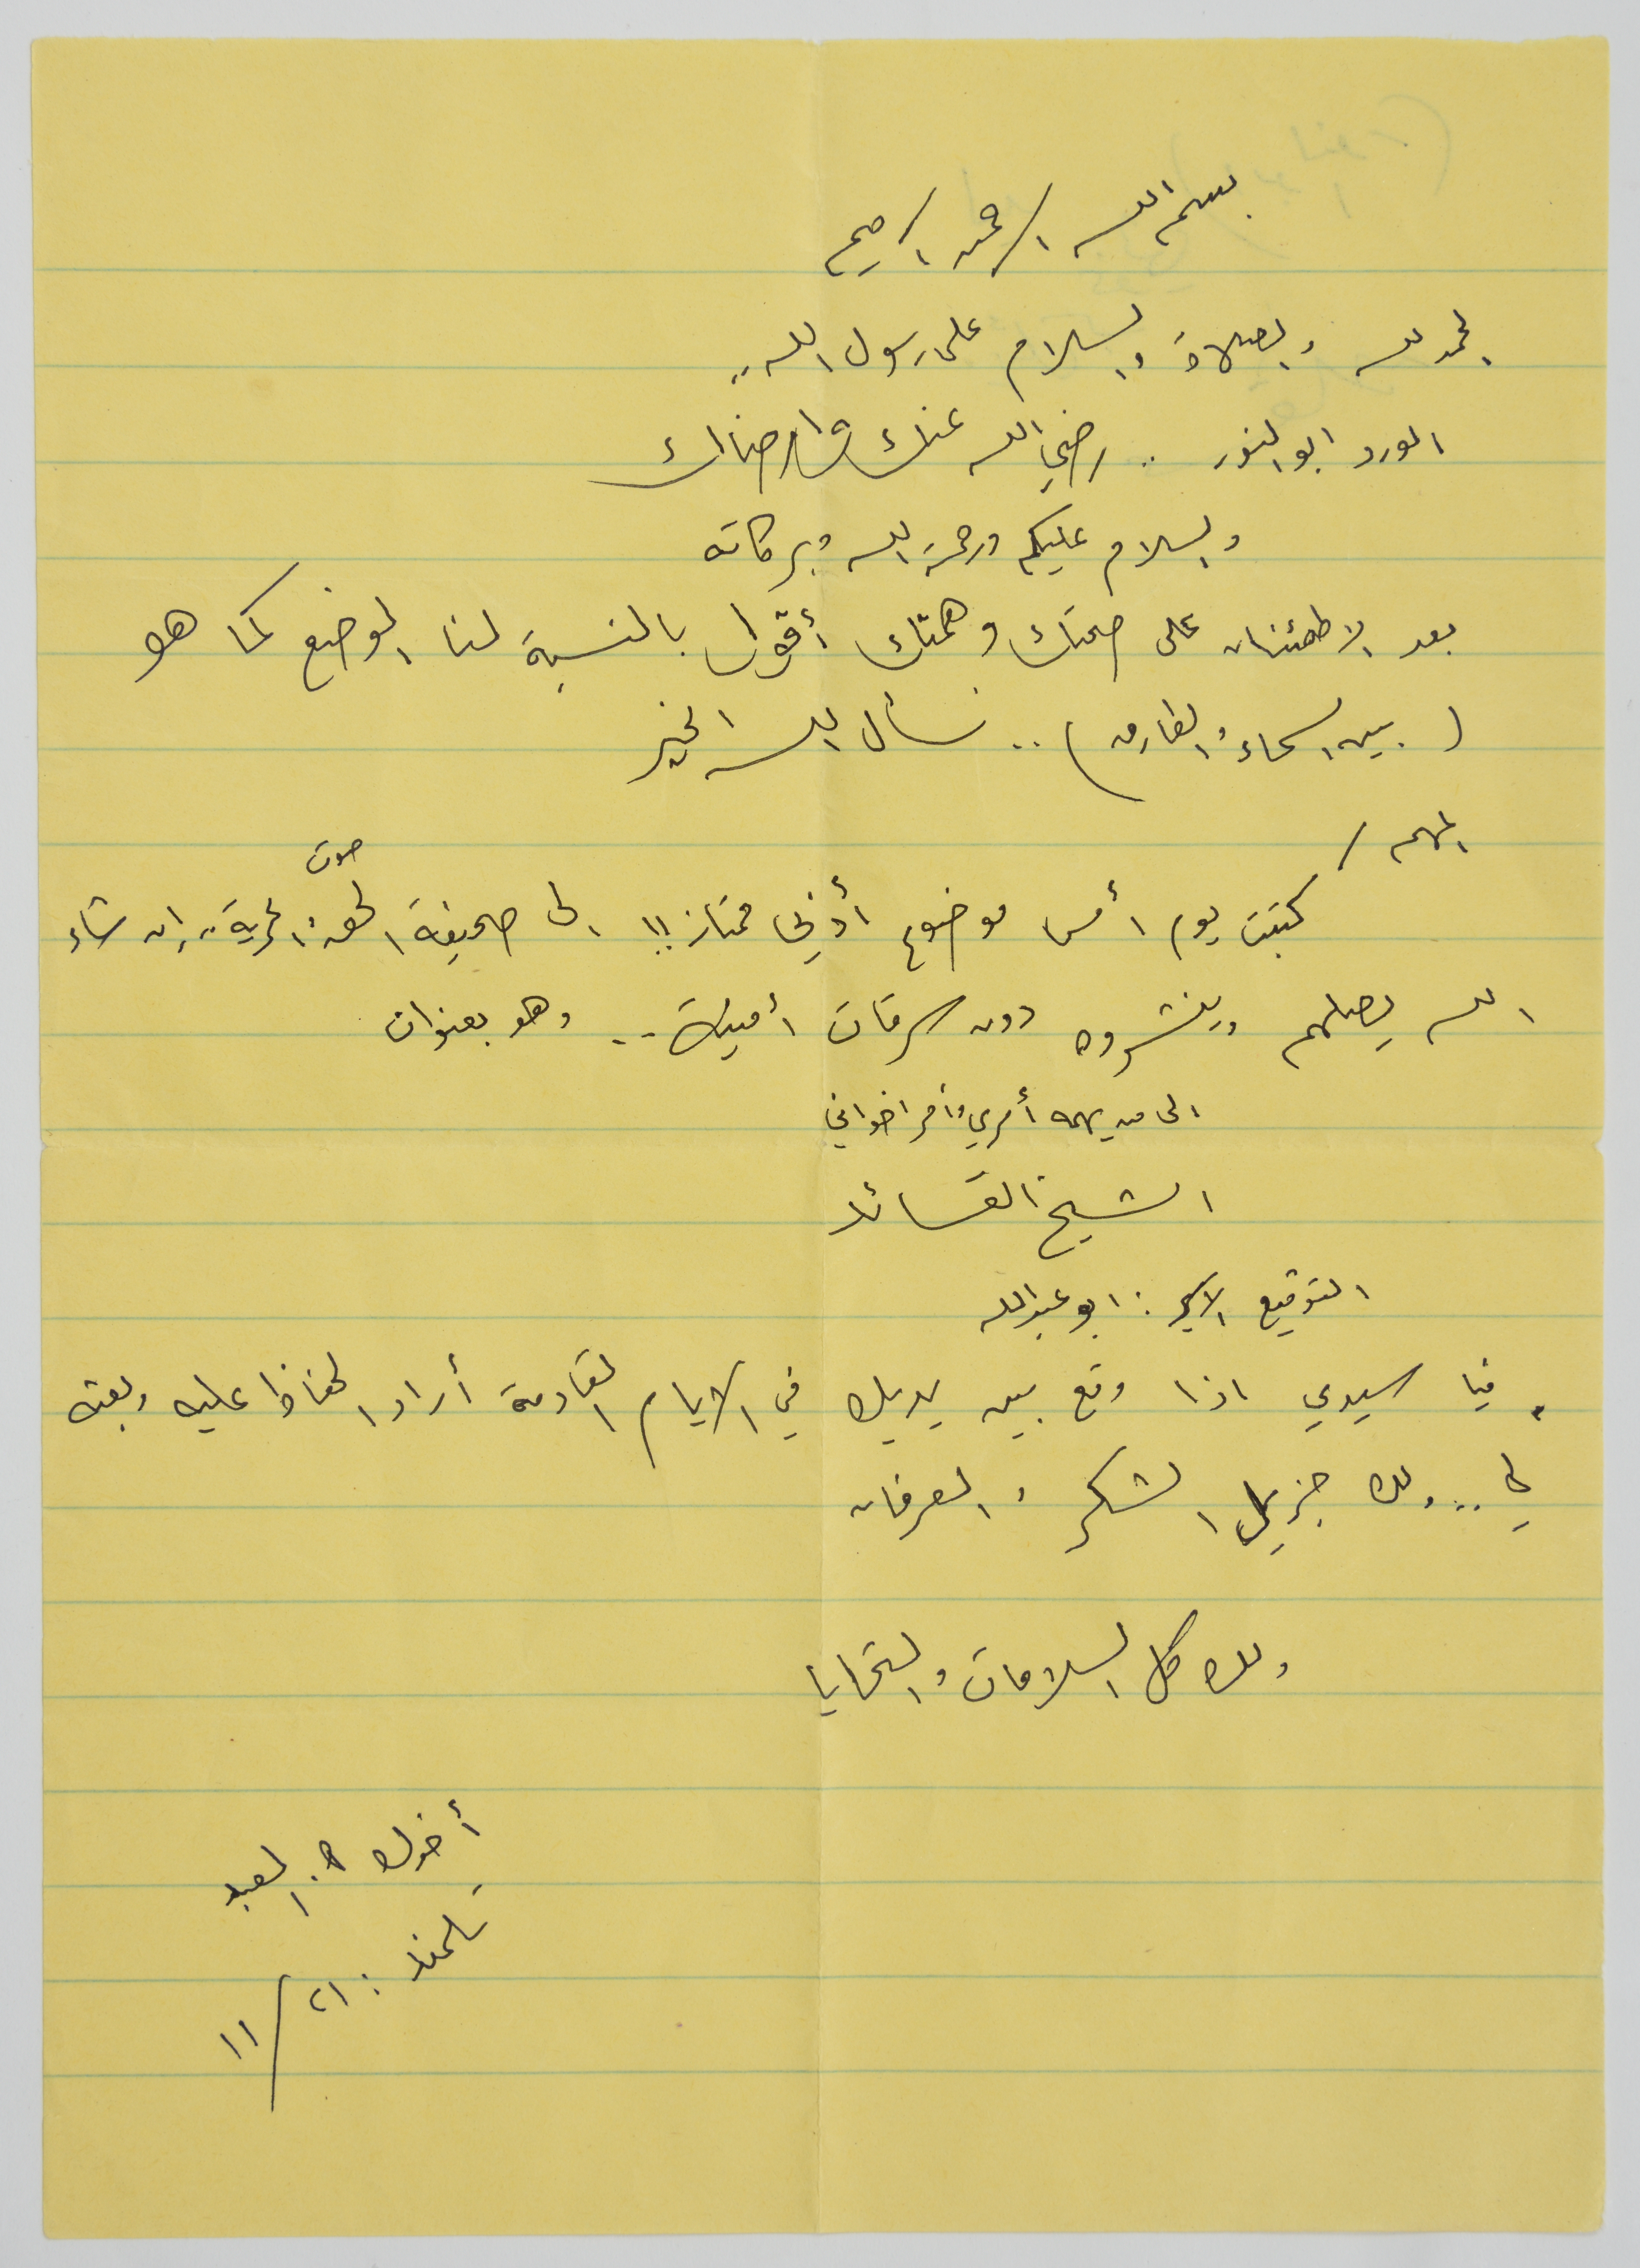 بسم الله الرحمن الرحيم
الحمد لله والصلاة والسلام على رسول الله ..
الورد ابو النور .. رضي الله عنك وارضاك
والسلام عليكم ورحمة الله وبركاته
بعد الاطمئنان على صحتك وهمتك أقول بالنسبة لنا الوضع كما هو
( بين السماء والطارق ) .. نسأل الله الخير
المهم /
كتبت يوم أمس موضوع أدبي ممتاز !! الى صحيفة صوت الحق والحرية .. إن شاء
الله يصلهم وينشروه دون سرقات أمنية .. وهو بعنوان
الى من يهمه أمري وأمر اخواني
الشيخ القائد
التوقيع الأسير : ابو عبدالله
فيا سيدي اذا وقع بين يديك في الايام القادمة أراد الحفاظ عليه وبعثه
لي .. ولك جزيل الشكر والعرفان
ولك كل السلامات والتحايا
أخوك العبد
٢١ / ١١